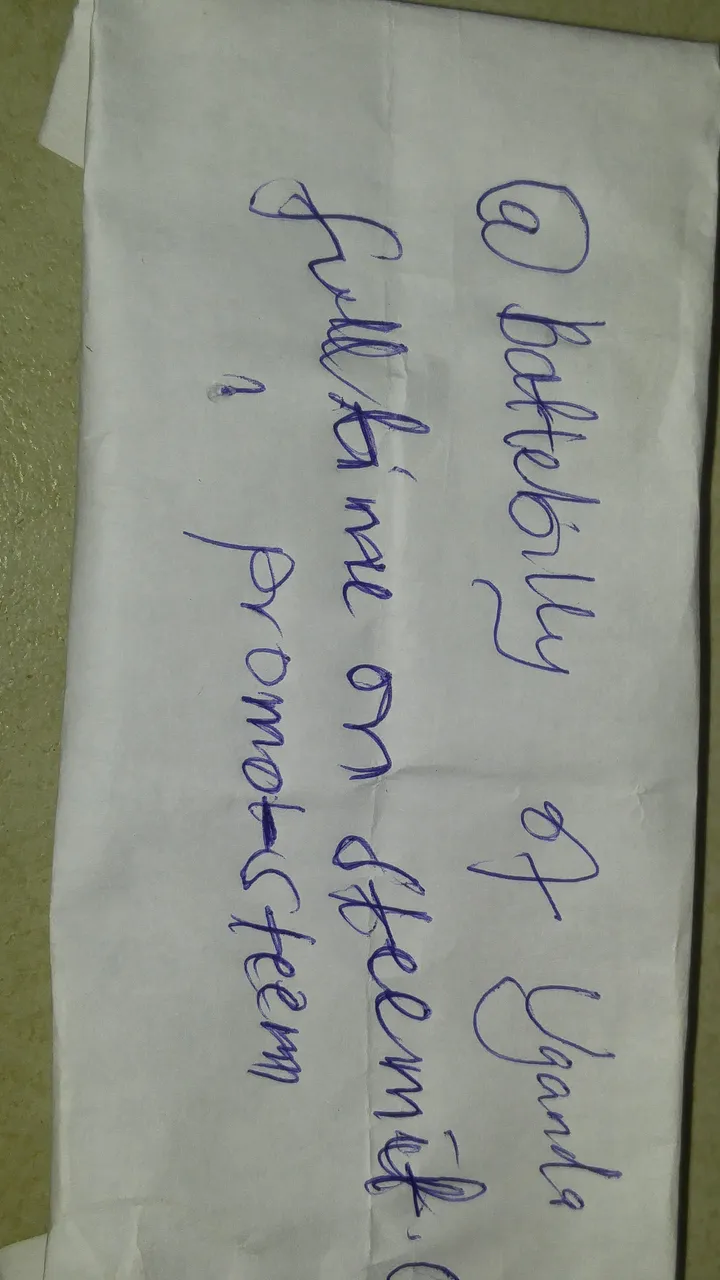 @battebilly of Uganda
full time on steemit.
promo-steem